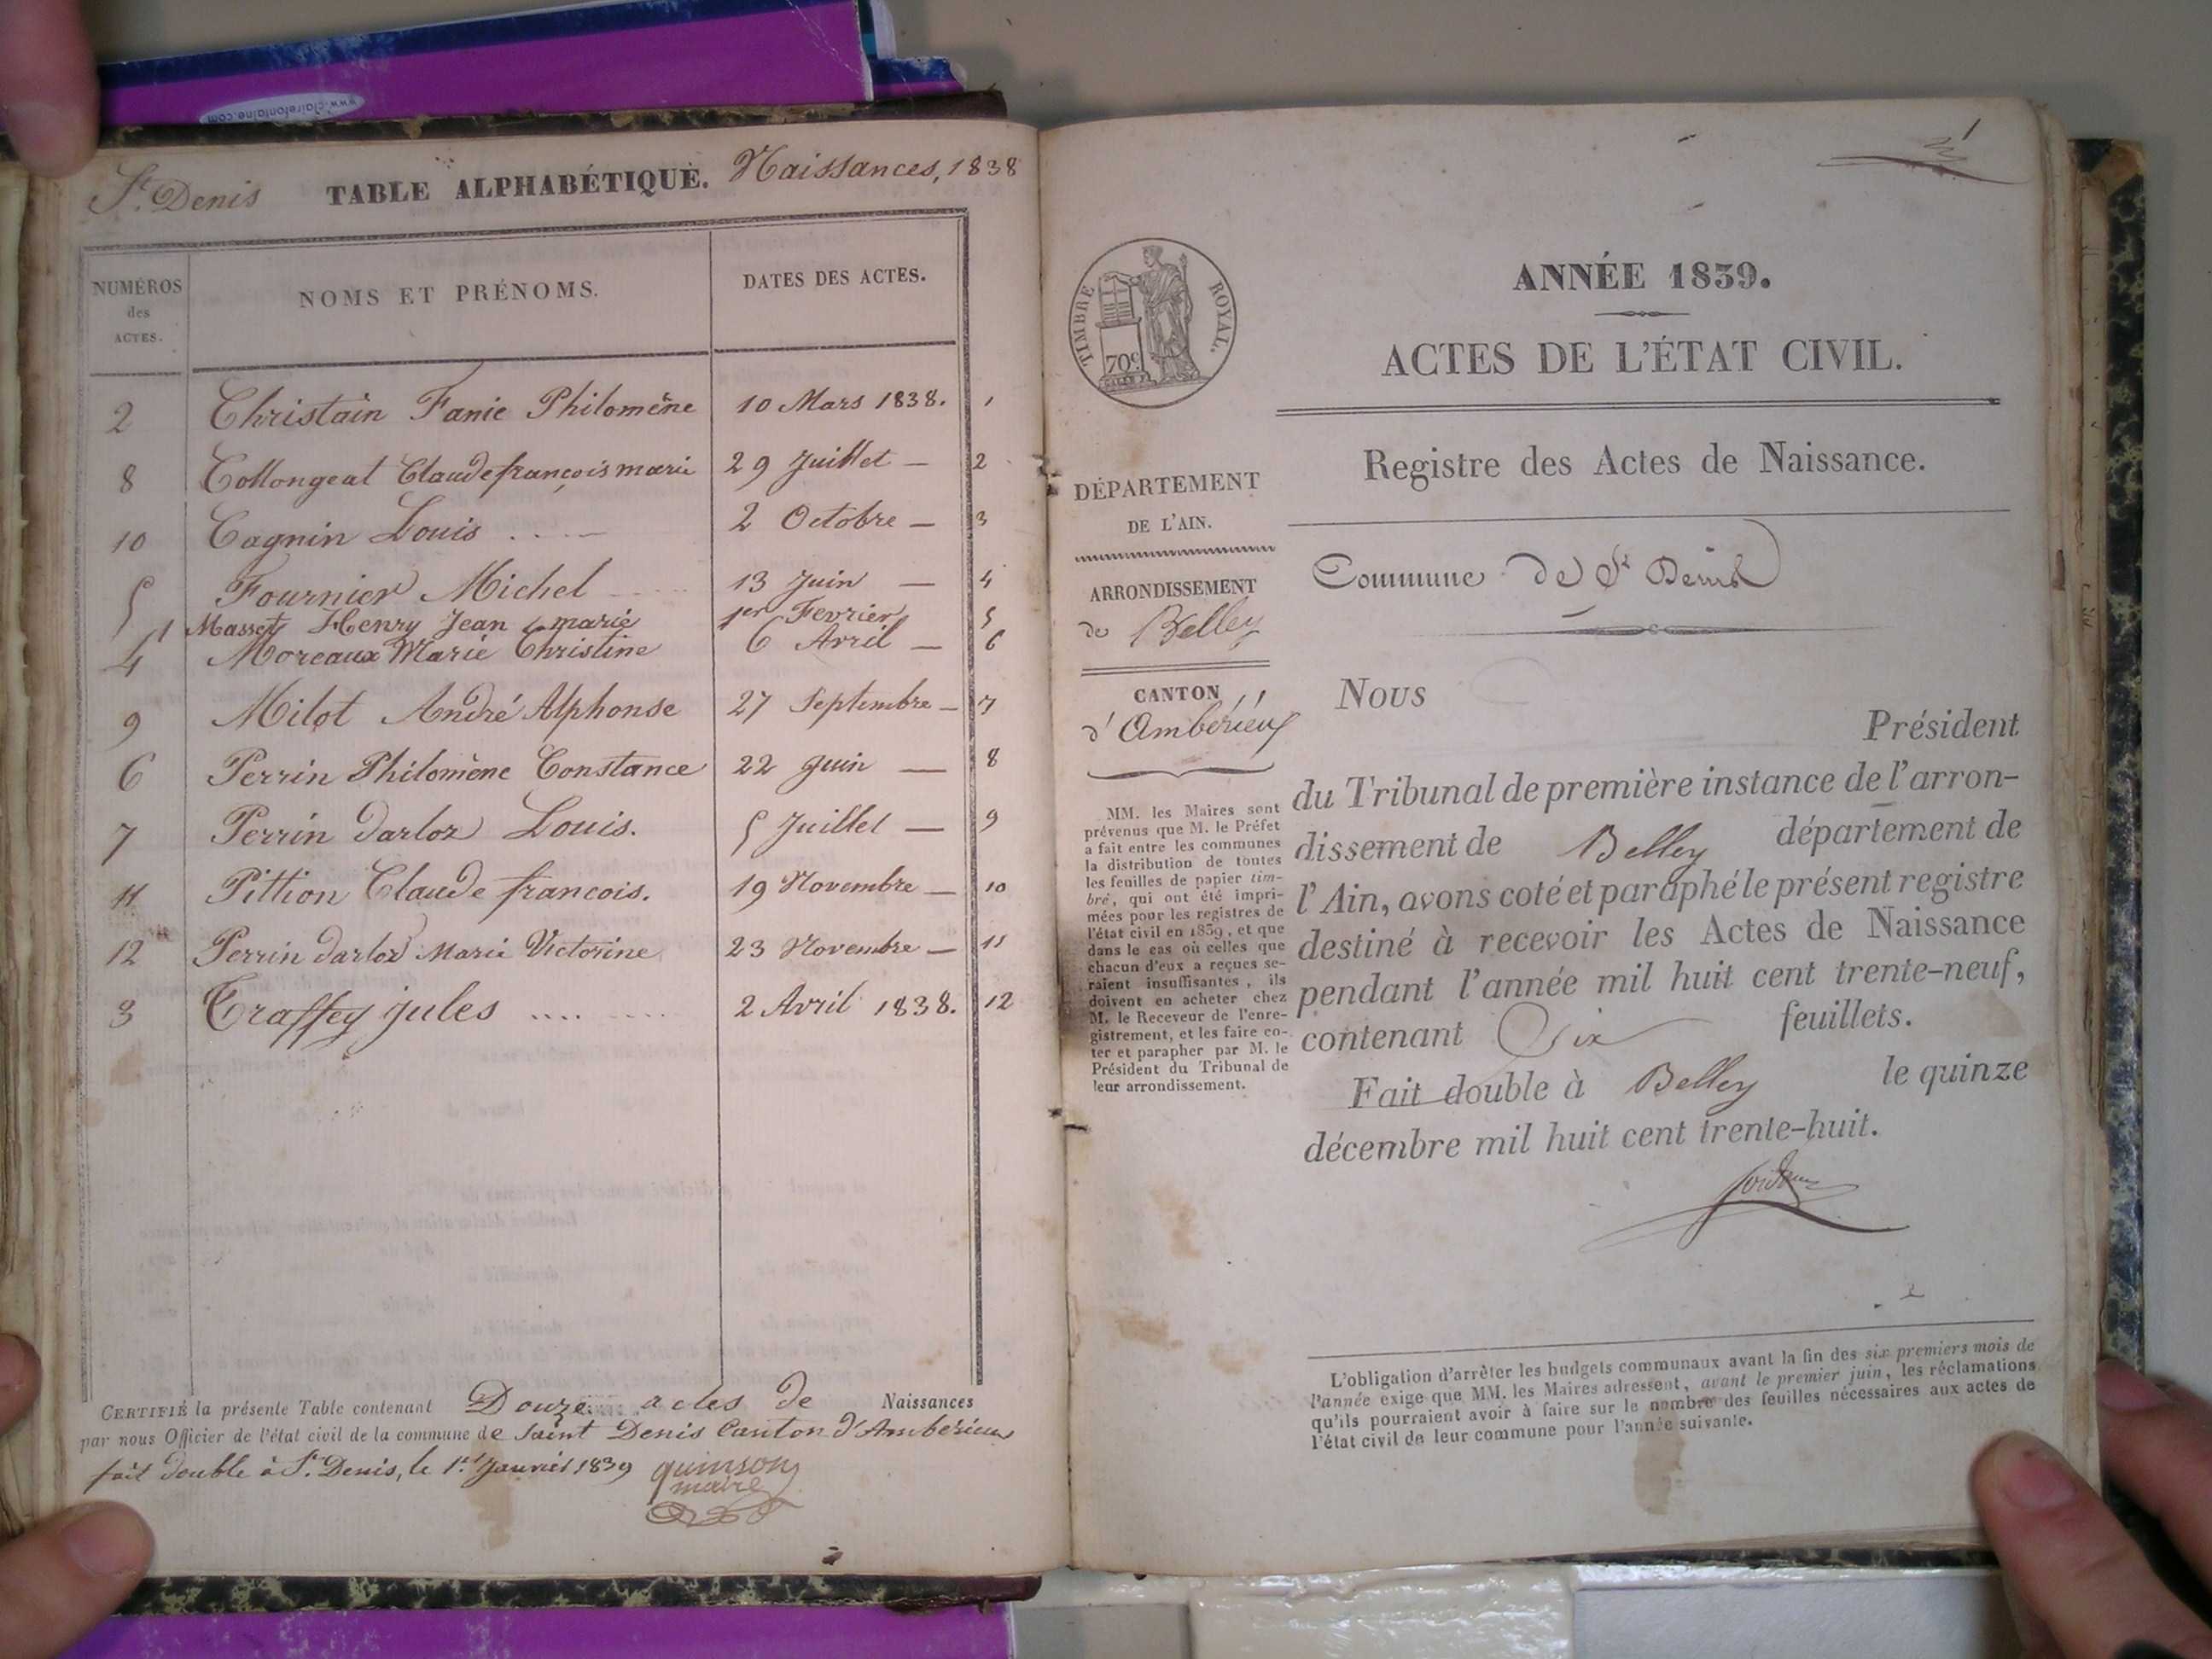 www.clairefontaine.com
St. Denis TABLE ALPHABÉTIQUE. Naissances, 1838
NUMÉROS des ACTES. NOMS ET PRÉNOMS. DATES DES ACTES.
2 Christain Fanie Philomène 10 Mars 1838. 1
8 Collongeat Claude françois marie 29 Juillet — 2
10 Cagnin Louis .... 2 Octobre — 3
5 Fournier Michel 13 Juin — 4
1 Masset Henry Jean marie 1er Fevrier 5
4 Moreaux Marie Christine 6 Avril — 6
9 Milot André Alphonse 27 Septembre — 7
6 Perrin Philomène Constance 22 juin — 8
7 Perrin darloz Louis. 5 Juillet — 9
11 Pittion Claude francois. 19 Novembre — 10
12 Perrin darloz Marie Victorine 23 Novembre — 11
3 Traffey jules .... 2 Avril 1838. 12
CERTIFIÉ la présente Table contenant Douze actes de Naissances
par nous Officier de l'état civil de la commune de Saint Denis Canton d'Ambérieux
fait double à St. Denis, le 1er Janvier 1839 quinson
maire
1
TIMBRE ROYAL.
70c
ANNÉE 1839.
ACTES DE L'ÉTAT CIVIL.
Registre des Actes de Naissance.
DÉPARTEMENT
DE L'AIN.
ARRONDISSEMENT
de Belley
CANTON
d'Ambérieux
MM. les Maires sont
prévenus que M. le Préfet
a fait entre les communes
la distribution de toutes
les feuilles de papier tim-
bré, qui ont été impri-
mées pour les registres de
l'état civil en 1839, et que
dans le cas où celles que
chacun d'eux a reçues se-
raient insuffisantes, ils
doivent en acheter chez
M. le Receveur de l'enre-
gistrement, et les faire co-
ter et parapher par M. le
Président du Tribunal de
leur arrondissement.
Commune de St Denis
Nous
Président
du Tribunal de première instance de l'arron-
dissement de Belley département de
l'Ain, avons coté et paraphé le présent registre
destiné à recevoir les Actes de Naissance
pendant l'année mil huit cent trente-neuf,
contenant Six feuillets.
Fait double à Belley le quinze
décembre mil huit cent trente-huit.
L'obligation d'arrêter les budgets communaux avant la fin des six premiers mois de
l'année exige que MM. les Maires adressent, avant le premier juin, les réclamations
qu'ils pourraient avoir à faire sur le nombre des feuilles nécessaires aux actes de
l'état civil de leur commune pour l'année suivante.